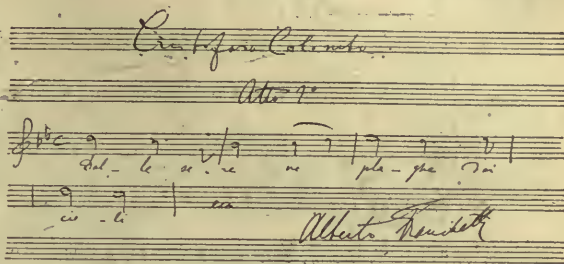 Cristoforo Colombo
Atto 1º
Dal - le se - re ne pla - ghe dei
cie - li
Alberto Franchetti